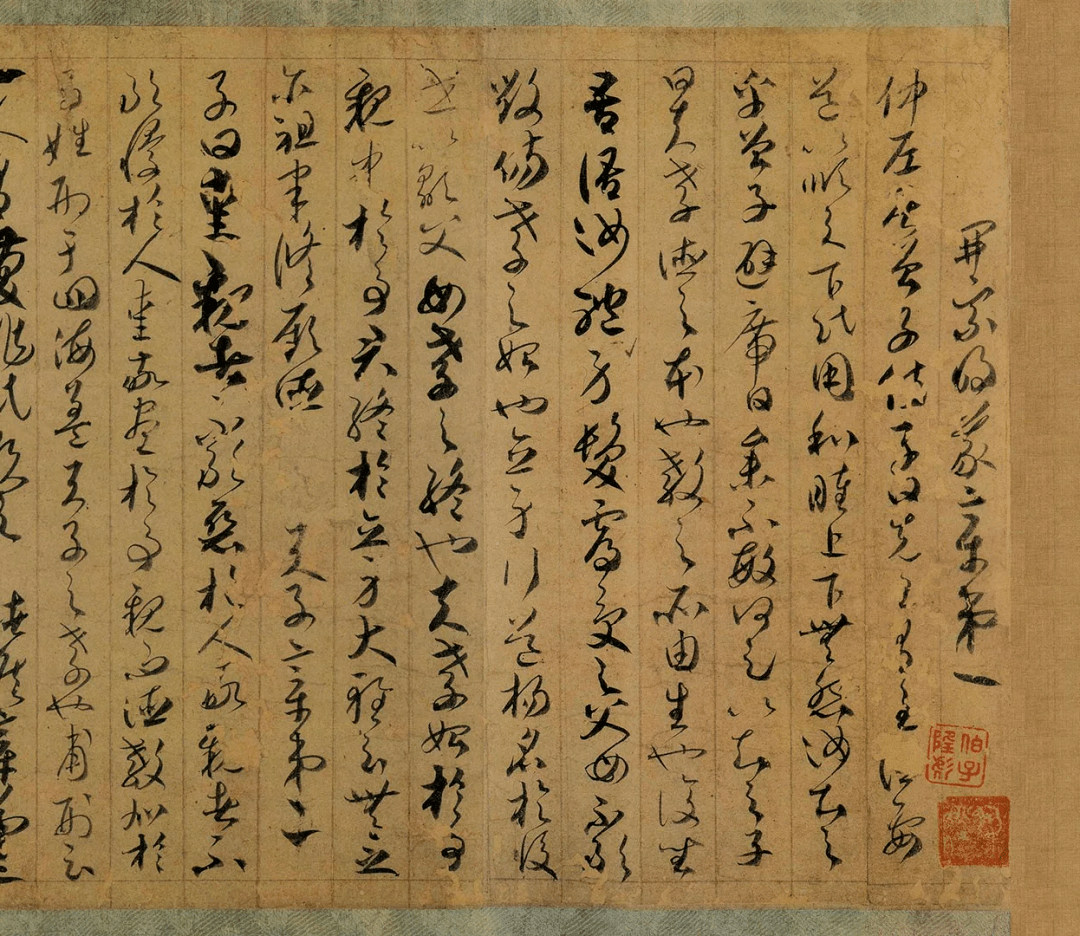 開宗明義章第一
仲尼居曾子侍子曰先王有至德要
道以順天下民用和睦上下無怨汝知之
乎曾子避席曰參不敏何足以知之子
曰夫孝德之本也教之所由生也復坐
吾語汝體身髮膚受之父母不敢
毀傷孝之始也立身行道揚名於後
世以顯父母孝之終也夫孝始於事
親中於事君終於立身大雅云無念
尔祖聿脩厥德 天子章第二
子曰愛親者不敢惡於人敬親者不
敢慢於人愛敬盡於事親而德教加於
百姓刑于四海蓋天子之孝也甫刑云
一人有慶兆民賴之 諸侯章第三